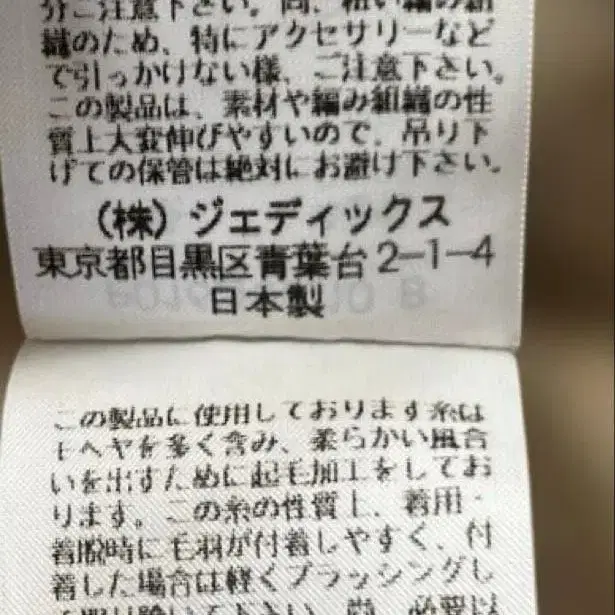 分ご注意下さい。尚、粗い編み組
織のため、特にアクセサリーなど
で引っかけない様、ご注意下さい。
この製品は、素材や編み組織の性
質上大変伸びやすいので、吊り下
げての保管は絶対にお避け下さい。
(株)ジェディックス
東京都目黒区青葉台2-1-4
日本製
この製品に使用しております糸は
モヘヤを多く含み、柔らかい風合
いを出すために起毛加工をしてお
ります。この糸の性質上、着用・
着脱時に毛羽が付着しやすく、付
着した場合は軽くブラッシングし
て取り除いて下さい。尚、必要以